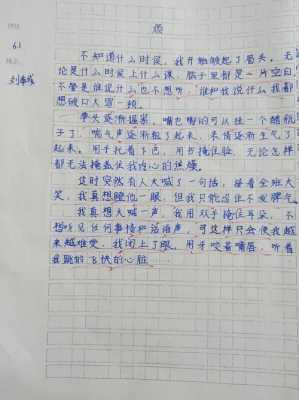 烦
6.1
不知道什么时候,我开始皱起了眉头。无
论是什么时候上什么课,脑子里都是一片空白,
不管是谁说什么也不想听,谁和我说什么我都
想破口大骂一顿。
拳头逐渐握紧,嘴巴嘟的可以挂一个醋瓶
子了,喘气声逐渐粗了起来,表情逐渐生气了
起来。用手托着下巴,用书掩住脸,无论怎样
都无法掩盖住我内心的焦燥。
这时突然有人大喊了一句话,接着全班大
笑,我真想瞪他一眼,但我只能忍住不发脾气。
我真想大喊一声,我用双手掩住耳朵,不
想听见任何事情和说话声,可这样只会使我越
来越难受,我闭上了眼。用牙咬着嘴唇,听着
我跳的飞快的心脏。